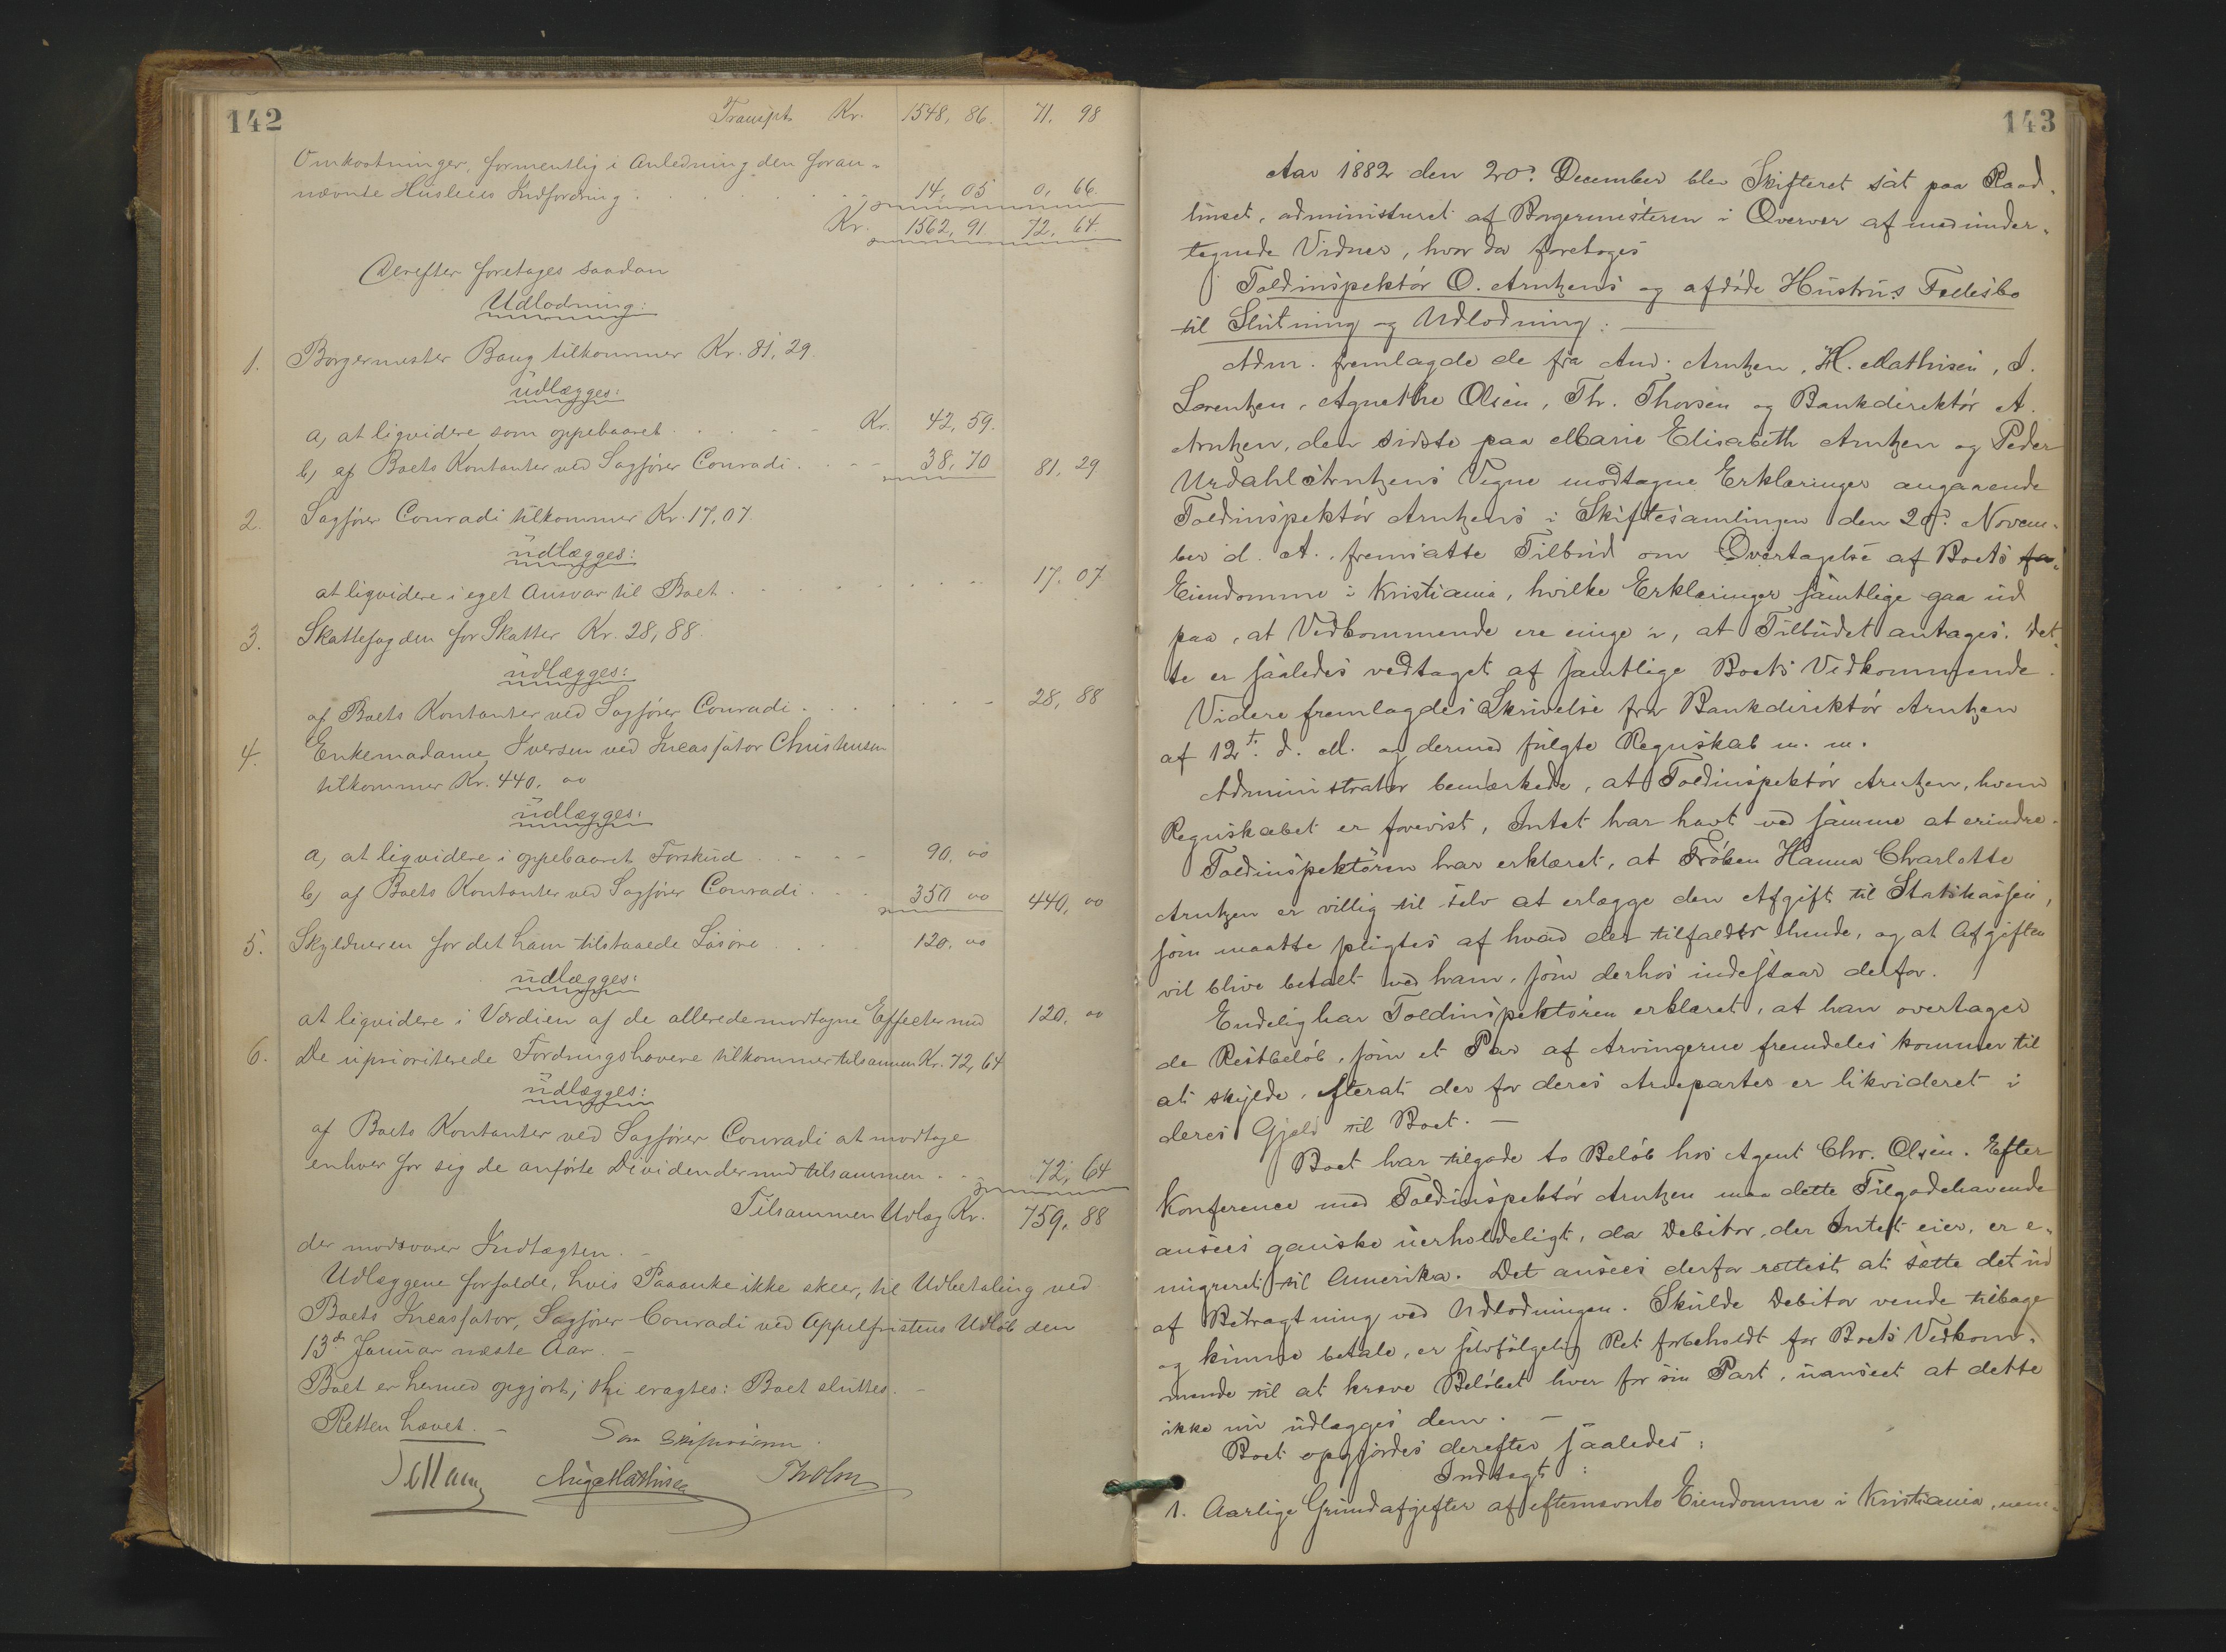 142
Transpt. Kr. 1548, 86. 71, 98
Omkostninger, formentlig i Anledning den foran-
nævnte Huslies Indfordring . . . . 14, 05 0, 66
Kr. 1562, 91 72, 64.
Derefter foretages saadan
Udlodning:
1. Borgermester Bang tilkommer Kr. 81, 29.
udlægges:
a, at liqvidere som oppebaaret . . . . Kr. 42, 59.
b, af Boets Kontanter ved Sagfører Conradi . . . 38, 70 81, 29
2. Sagfører Conradi tilkommer Kr. 17, 07.
udlægges:
at liqvidere i eget Ansvar til Boet . . . . 17, 07
3. Skattefogden for Skatter Kr. 28, 88.
udlægges:
af Boets Kontanter ved Sagfører Conradi . . . . 28, 88
4. Enkemadame Iversen ved Incassator Christensen
tilkommer Kr. 440, 00
udlægges:
a, at liqvidere i oppebaaret Forskud . . . . 90, 00
b, af Boets Kontanter ved Sagfører Conradi . . . 350 00 440, 00
5. Skyldneren for det ham tilstaaede Løsøre . . . 120, 00
udlægges:
at liqvidere i Værdien af de allerede modtagne Effecter med 120, 00
6. De uprioriterede Fordringshavere tilkommer tilsammen Kr. 72, 64
udlægges:
af Boets Kontanter ved Sagfører Conradi at modtage
enhver for sig de anførte Dividender med tilsammen . . 72, 64
Tilsammen Udlæg Kr. 759, 88
der modsvarer Indtægten. -
Udlæggene forfalde, hvis Paaanke ikke skeer, til Udbetaling ved
Boets Incassator, Sagfører Conradi ved Appelfristens Udløb den
13de Januar næste Aar. -
Boet er hermed opgjort; thi eragtes: Boet sluttes. -
Retten hævet. -
Som Skifte
Aug. Mathisen Th Olsen
143
Aar 1882 den 20de December blev Skifteret sat paa Raad-
huset, administreret af Borgermesteren i Overvær af medunder-
tegnede Vidner, hvor da foretoges
Toldinspektør O. Arntzens og afdøde Hustrus Fællesbo
til Slutning og Udlodning: —
Adm. fremlagde de fra And. Arntzen, H. Mathisen, I.
Lorentzen, Agnethe Olsen, Th. Thorsen og Bankdirektør A.
Arntzen, den sidste paa Marie Elisabeth Arntzen og Peder
Urdahl Arntzens Vegne modtagne Erklæringer angaaende
Toldinspektør Arntzens i Skiftesamlingen den 20de Novem-
ber d. A. fremsatte Tilbud om Overtagelse af Boets fa-
Eiendomme i Kristiania, hvilke Erklæringer samtlige gaa ud
paa, at Vedkommende ere enige i, at Tilbudet antages. Det-
te er saaledes vedtaget af samtlige Boets Vedkommende.
Videre fremlagdes Skrivelse fra Bankdirektør Arntzen
af 12te d. M. og dermed fulgte Regnskab m. m.
Administrator bemærkede, at Toldinspektør Arntzen, hvem
Regnskabet er forevist, Intet har havt ved samme at erindre.
Toldinspektøren har erklæret, at Frøken Hanna Charlotte
Arntzen er villig til selv at erlægge den Afgift til Statskassen,
som maatte pligtes af hvad der tilfalder hende, og at Afgiften
vil blive betalt ved ham, som derhos indestaar derfor.
Endelig har Toldinspektøren erklæret, at han overtager
de Restbeløb, som et Par af Arvingerne fremdeles kommer til
at skylde, efterat der for deres Arveparter er likvideret i
deres Gjæld til Boet. —
Boet har tilgode to Beløb hos Agent Chr. Olsen. Efter
Konference med Toldinspektør Arntzen maa dette Tilgodehavende
ansees ganske uerholdeligt, da Debitor, der Intet eier, er e-
migreret til Amerika. Det ansees derfor rettest at sætte det ud
af Betragtning ved Udlodningen. Skulde Debitor vende tilbage
og kunne betale, er selvfølgelig Ret forbeholdt for Boets Vedkom-
mende til at kræve Beløbet hver for sin Part, uanseet at dette
ikke nu udlægges dem. —
Boet opgjordes derefter saaledes:
Indtægt:
1. Aarlige Grundafgifter af efternævnte Eiendomme i Kristiania, nem-